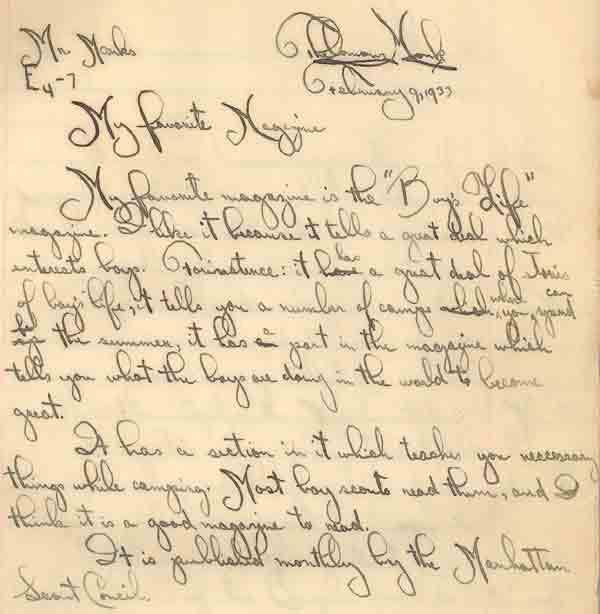 Mr. Marks Thelonious Monk
E4-7 February 9, 1933
My favorite Magazine
My favorite magazine is the "Boy's Life"
magazine. I like it because it tells a great deal which
interests boys. Forinsistence: it have has a great deal of stories
of boy's life, it tells you a number of camps which, where you, can spend
the summer, it has a part in the magazine which
tells you what the boys are doing in the world to become
great.
It has a section in it which teaches you neccessary
things while camping. Most boy scouts read them, and I
think it is a good magazine to read.
It is published monthly by the Manhattan
Scout Concil.